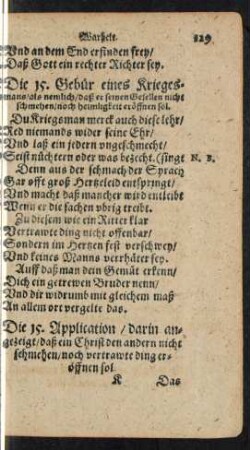 Warheit. 129
Vnd an dem End erfinden frey/
Daß Gott ein rechter Richter sey.
Die 15. Gebür eines Krieges-
mans/als nemlich/daß er seinen Gesellen nicht
schmehen/noch heimligkeit eröffnen sol.
Du Kriegsman merck auch diese lehr/
Red niemands wider seine Ehr/
Vnd laß ein jedern vngeschmecht/
Seist nüchtern oder was bezecht. (singt N. B.
Denn aus der schmach/der Sprach
Gar offt groß Hertzeleid entspringt/
Vnd macht daß mancher wird entleibt
Wenn er die sachen vbrig treibt.
Zu diesem wie ein Ritter klar
Vertrawte ding nicht offenbar/
Sondern im Hertzen fest verschwey/
Vnd keines Manns verrhäter sey.
Auff daß man dein Gemüt erkenn/
Dich ein getrewen Bruder nenn/
Vnd dir widrumb mit gleichem maß
An allem ort vergelte das.
Die 15. Application/darin an-
gezeigt/daß ein Christ den andern nicht
schmehen/noch vertrawte ding er-
öffnen sol.
K Das